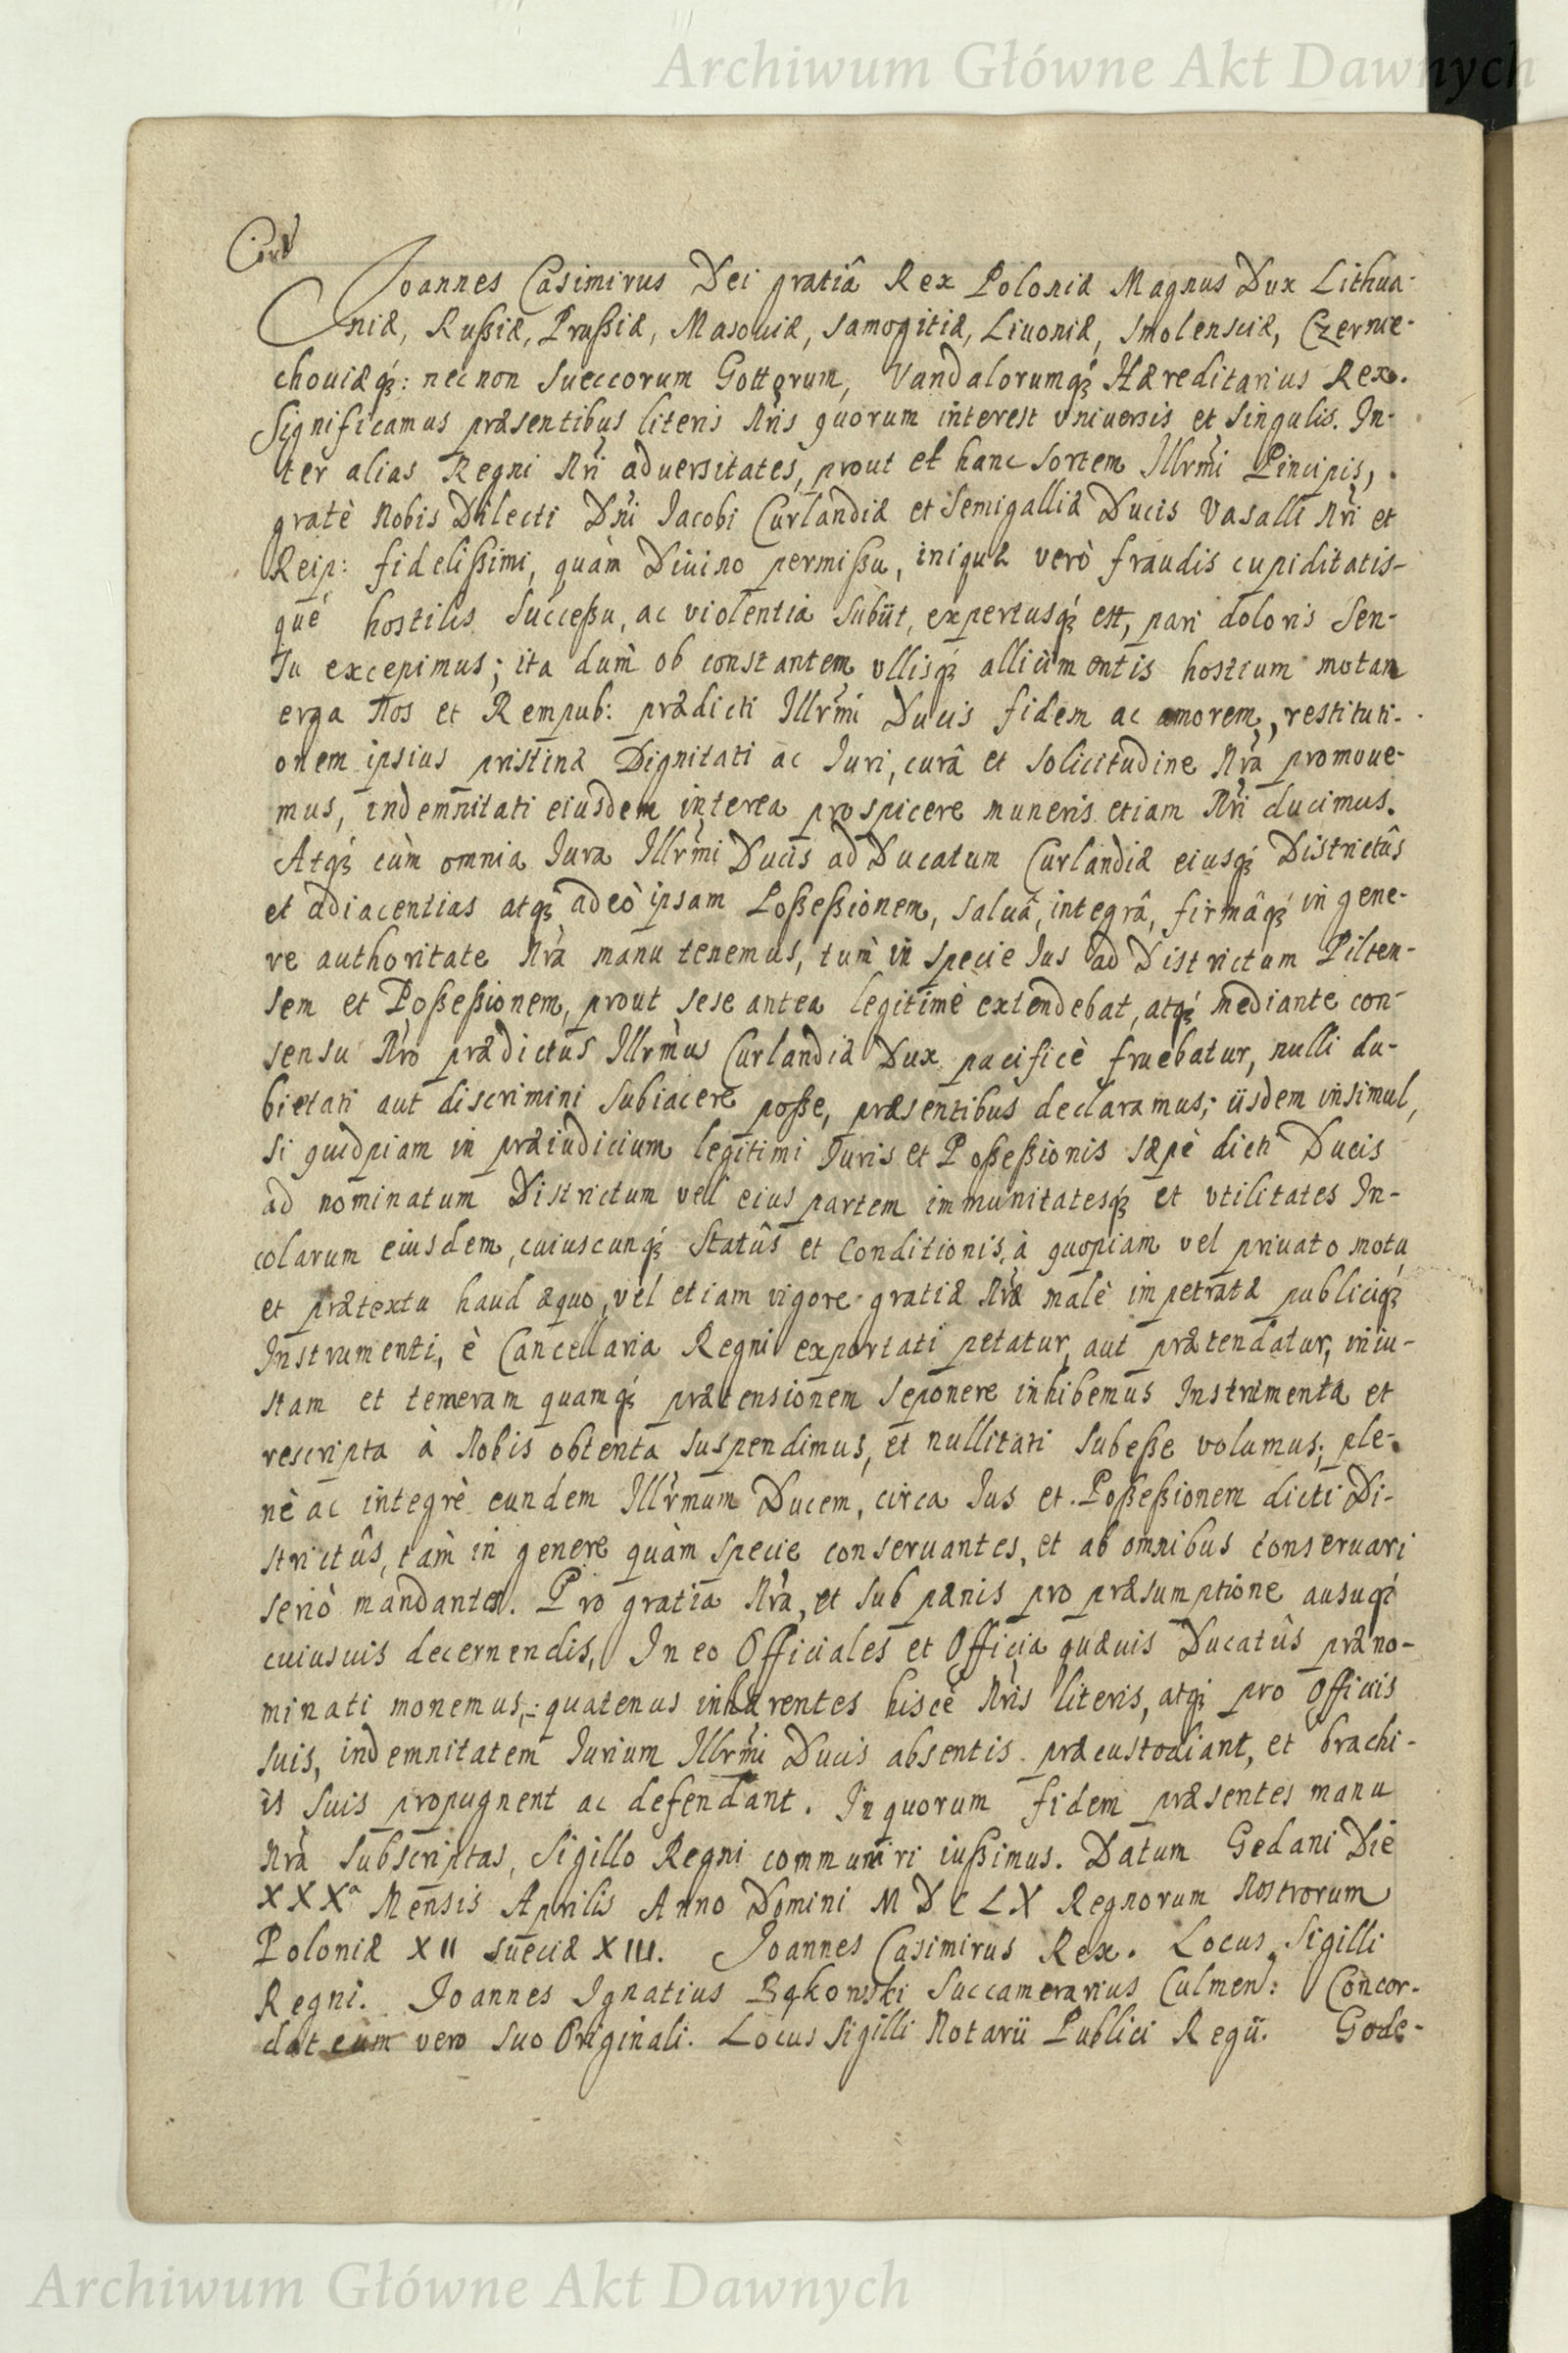 Archiwum Główne Akt Dawnych
Joannes Casimirus Dei gratiâ Rex Poloniæ Magnus Dux Lithua-
niæ, Rußiæ, Prußiæ, Masouiæ, Samogitiæ, Liuoniæ, Smolensciæ, Czernie-
chouiæq́ꝫ: nec non Sueccorum Gottorum, Vandalorumq́ꝫ Hæreditarius Rex.
Significamus præsentibus literis Nr̃is quorum interest vniuersis et singulis. In-
ter alias Regni Nr̃i aduersitates, prout et hanc sortem Illrm̃i Pincipis,
gratè Nobis Dilecti Dn̄i Jacobi Curlandiæ et Semigalliæ Ducis Vasalli Nr̃i et
Reip: fidelißimi, quàm Diuino permißu, iniquæ verò fraudis cupiditatis-
què hostilis succeßu, ac violentia subiit, expertusq́ꝫ est, pari doloris sen-
su excepimus; ita dum̀ ob constantem vllisq́ꝫ alliciimentis hostium motam
erga Nos et Rempub: prædicti Illrm̃i Ducis fidem ac amorem, restituti-
onem ipsius pristinæ Dignitati ac Juri, curâ et solicitudine Nr̃a promoue-
mus, indemnitati eiusdem interea prospicere muneris etiam Nr̃i ducimus.
Atq́ꝫ cùm omnia Jura Illrm̃i Ducis ad Ducatum Curlandiæ eiusq́ꝫ Districtûs
et adiacentias atq́ꝫ adeò ipsam Poßeßionem, saluâ, integrâ, firmâq́ꝫ in gene-
re authoritate Nr̃a manu tenemus, tum̀ in specie Jus ad Districtum Pilten-
sem et Poßeßionem, prout sese antea legitimè extendebat, atq́ꝫ mediante con-
sensu Nr̃o prædictus Illrm̃us Curlandiæ Dux pacificè fruebatur, nulli du-
bietati aut discrimini subiacere poße, præsentibus declaramus; iisdem insimul,
si quidpiam in præiudicium legitimi Juris et Poßeßionis sæpè dicti Ducis
ad nominatum Districtum vel eius partem immunitatesq́ꝫ et vtilitates In-
colarum eiusdem, cuiuscunq́ꝫ Statûs et Conditionis, à quopiam vel priuato motu
et prætextu haud æquo, vel etiam vigore gratiæ Nr̃æ malè impetratæ publiciq́ꝫ
Instrumenti, è Cancellaria Regni exportati petatur, aut prætendatur, iniu-
stam et temeram quamq́ꝫ prætensionem seponere inhibemus Instrumenta et
rescripta à Nobis obtenta suspendimus, et nullitati subeße volumus; ple-
nè ac integrè eundem Illrm̃um Ducem, circa Jus et Poßeßionem dicti Di-
strictûs, tàm in genere quàm specie conseruantes, et ab omnibus conseruari
seriò mandantes. Pro gratia Nr̃a, et sub pænis pro præsumptione ausuq́ꝫ
cuiusuis decernendis, In eo Officiales et Officia quæuis Ducatûs præno-
minati monemus, quatenus inhærentes hiscè Nr̃is literis, atq́ꝫ pro Officiis
suis, indemnitatem Jurium Illrm̃i Ducis absentis præcustodiant, et brachi-
is suis propugnent ac defendant. In quorum fidem præsentes manu
Nr̃a subscriptas, Sigillo Regni communiri iußimus. Datum Gedani Die
XXXᵃ Mensis Aprilis Anno Domini MDCLX Regnorum Nostrorum
Poloniæ XII Sueciæ XIII. Joannes Casimirus Rex. Locus Sigilli
Regni. Joannes Ignatius Bąkowski Succamerarius Culmen: Concor-
dat cum vero suo Originali. Locus Sigilli Notarii Publici Regii. Gode-
Archiwum Główne Akt Dawnych